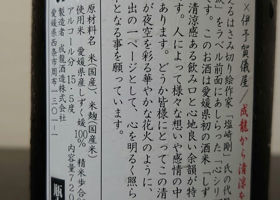 ×伊予賀儀屋 成龍から清涼を
えるはさみ切り絵作家・塩崎剛氏の代
をラベル前面にあしらった「心シリ
す。このお酒は愛媛県初の酒米「しず
清涼感ある飲み口と心地良い余韻が特
ます。人によって様々な想いや感情の中
が夜空を彩る華やかな花火のように、
あります。どうか皆様にとってこの清
出の一ページとして、心を明るく照ら
となる事を願っています。
原材料名 米(国産)、米麹(国産米)
使用米 愛媛県産しずく媛100% 精米歩合
アルコール分 15.5度 内容量720
製造者 成龍酒造株式会社
愛媛県西条市周布1301-1